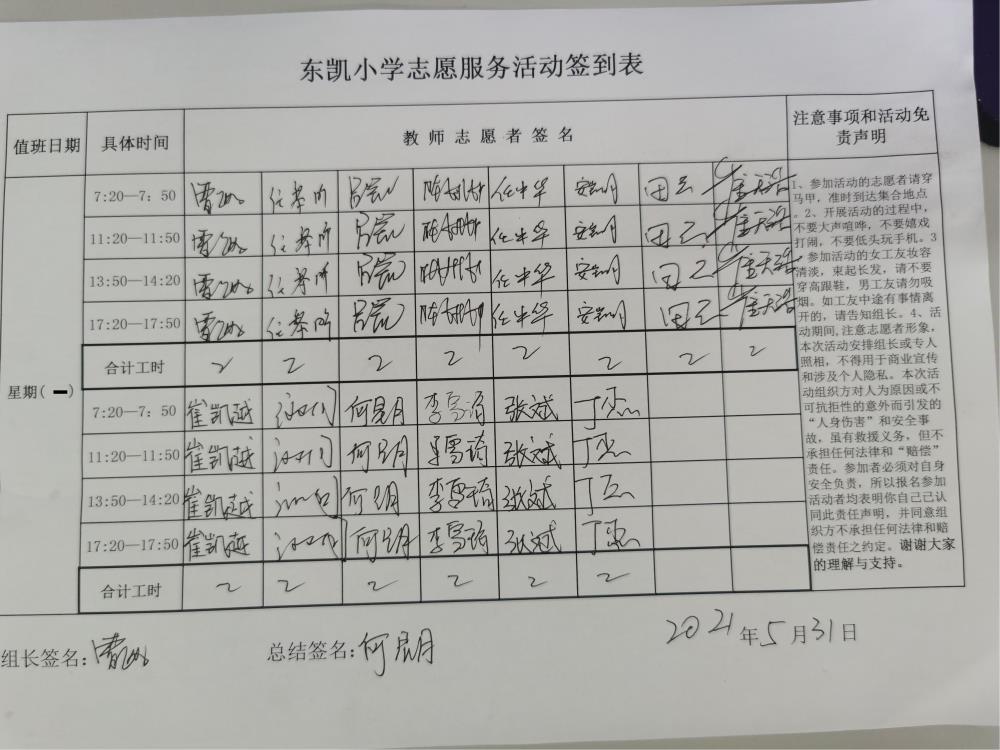 东凯小学志愿服务活动签到表
值班日期 具体时间 教师志愿者签名 注意事项和活动免
责声明
星期(一)
7:20—7:50 安 田
11:20—11:50 安 田
13:50—14:20 安 田
17:20—17:50 安 田
合计工时 2 2 2 2 2 2 2 2
7:20—7:50 崔凯越 何昆明 李雪琦 张斌 丁杰
11:20—11:50 崔凯越 何昆明 李雪琦 张斌 丁杰
13:50—14:20 崔凯越 何昆明 李雪琦 张斌 丁杰
17:20—17:50 崔凯越 何昆明 李雪琦 张斌 丁杰
合计工时 2 2 2 2 2 2
1、参加活动的志愿者请穿
马甲,准时到达集合地点
。2、开展活动的过程中,
不要大声喧哗,不要嬉戏
打闹,不要低头玩手机。3
、参加活动的女工友妆容
清淡,束起长发,请不要
穿高跟鞋,男工友请勿吸
烟。如工友中途有事情离
开的,请告知组长。4、活
动期间,注意志愿者形象,
本次活动安排组长或专人
照相,不得用于商业宣传
和涉及个人隐私。本次活
动组织方对人为原因或不
可抗拒性的意外而引发的
“人身伤害”和安全事
故,虽有救援义务,但不
承担任何法律和“赔偿”
责任。参加者必须对自身
安全负责,所以报名参加
活动者均表明你自己已认
同此责任声明,并同意组
织方不承担任何法律和赔
偿责任之约定。谢谢大家
的理解与支持。
组长签名: 总结签名:何昆明 2021年5月31日